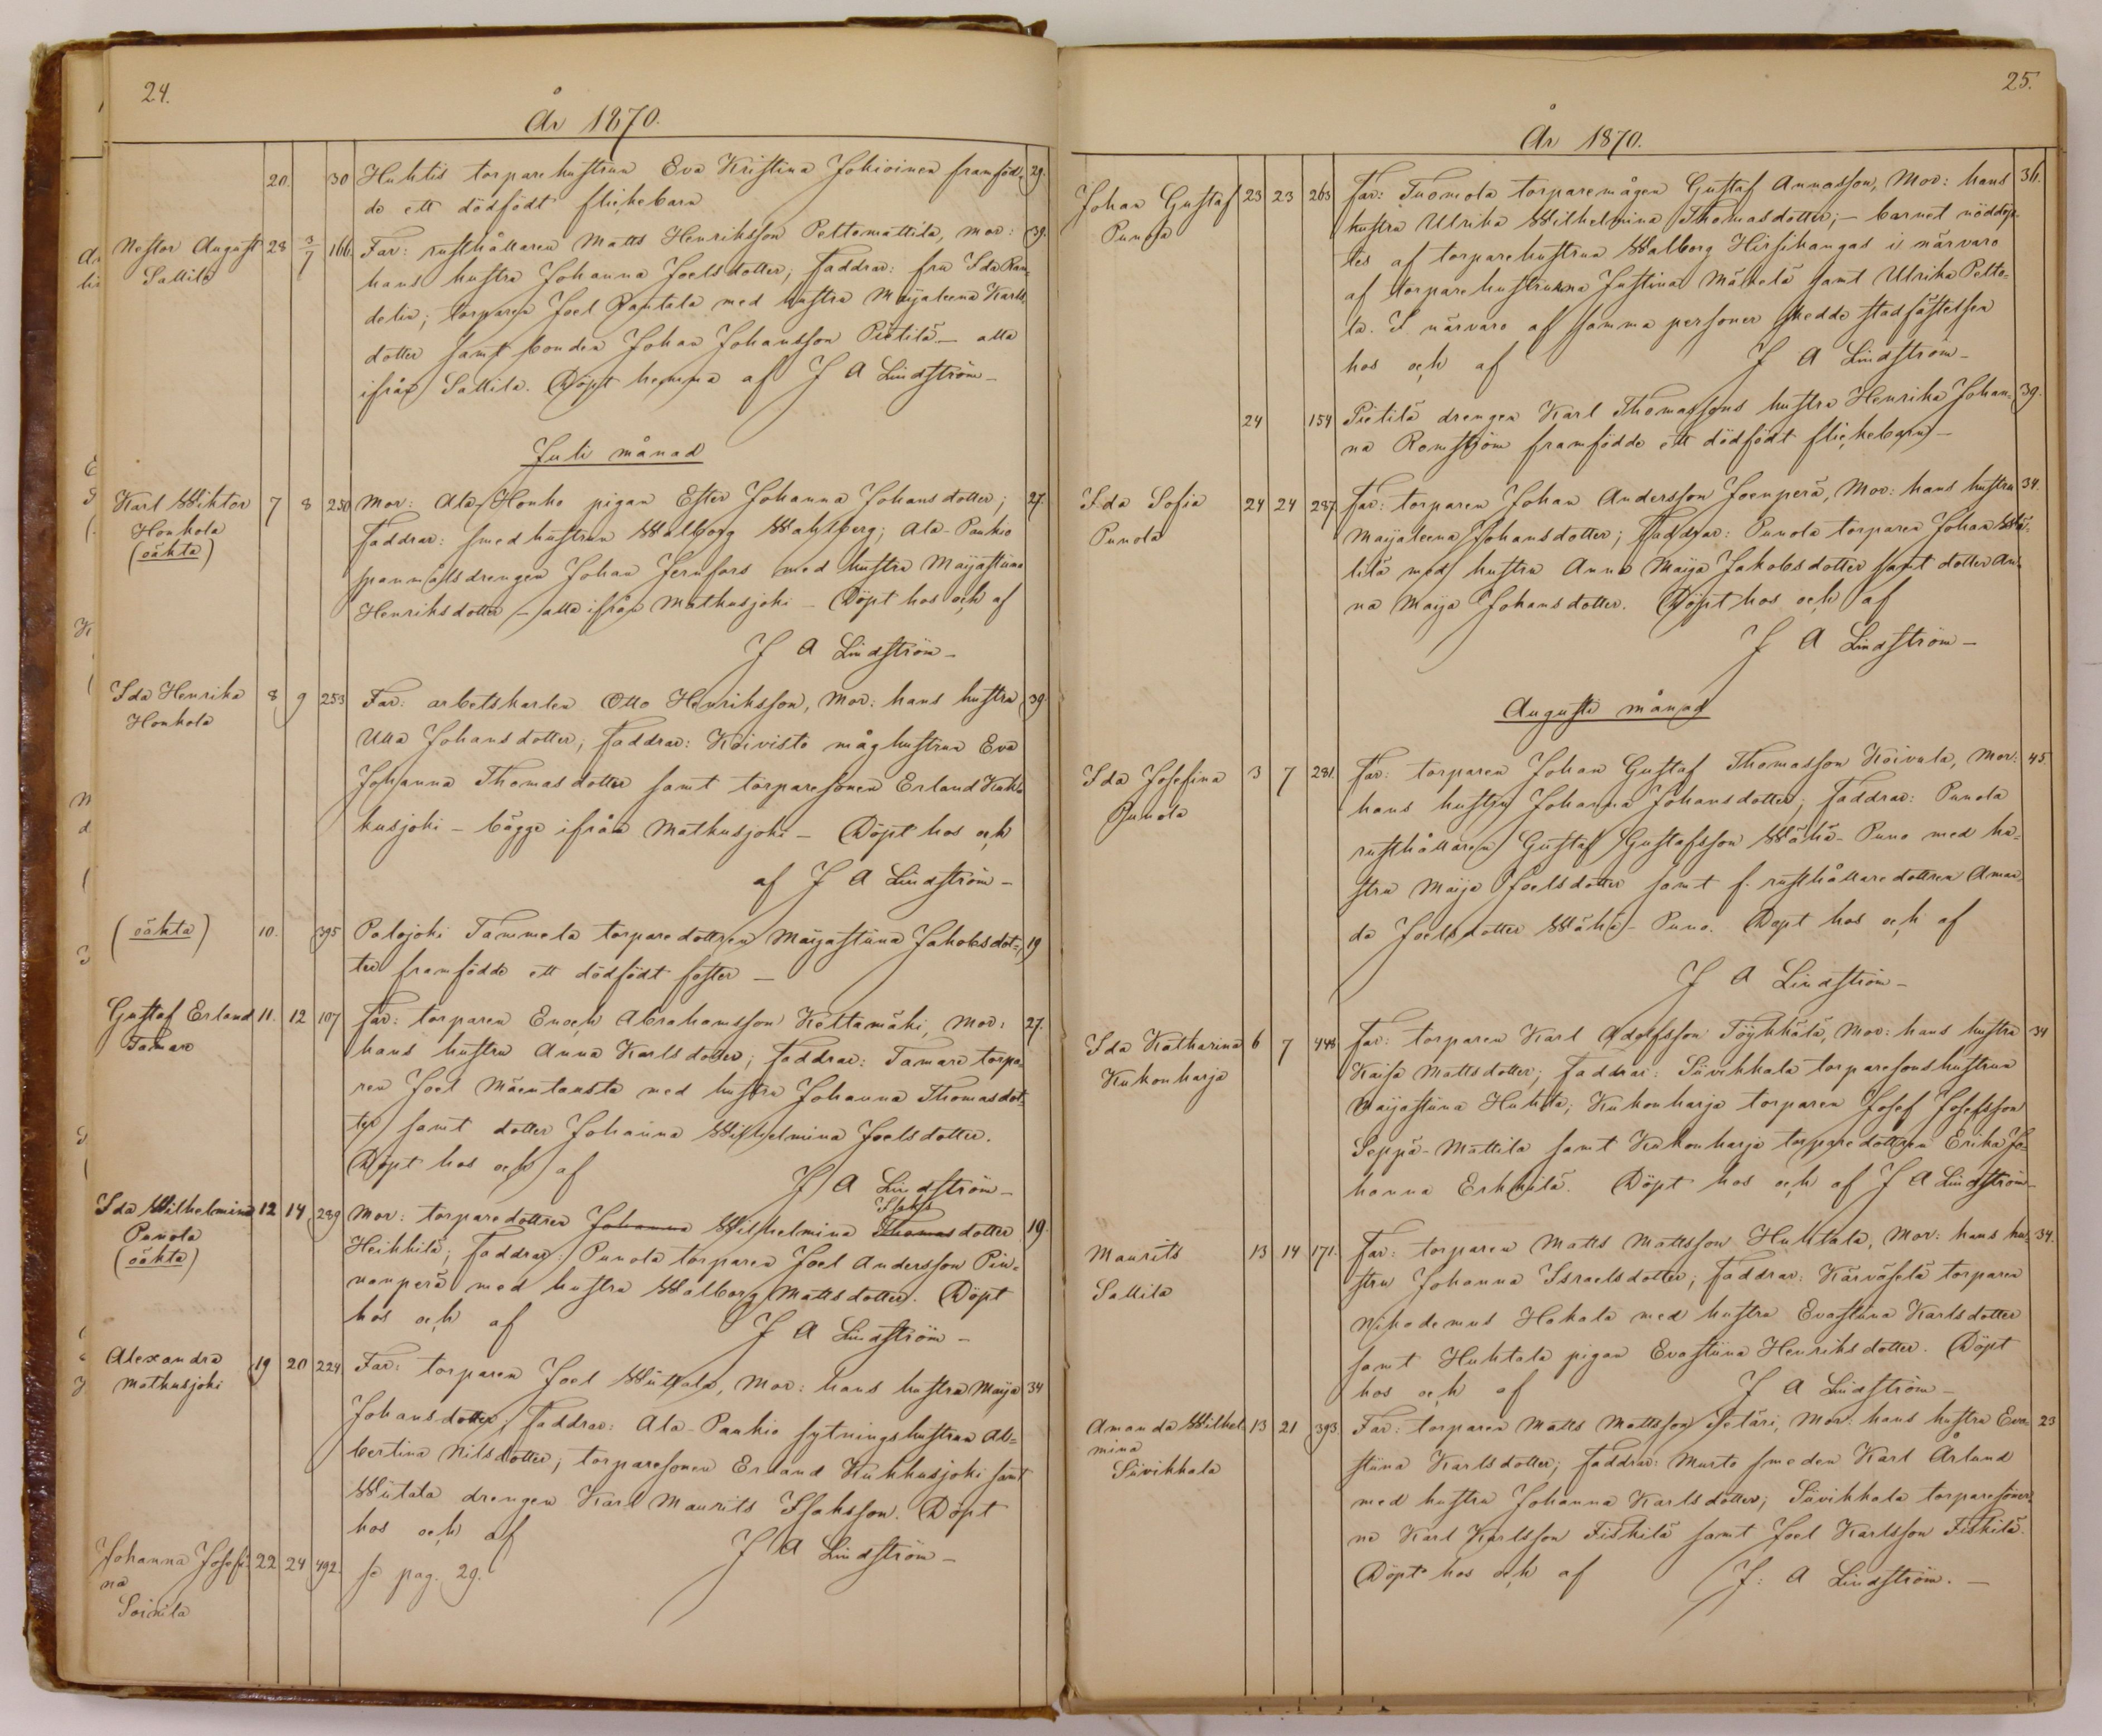 24.
År 1870.
20. 30 Huhtis torparehustrun Eva Kristina Jokioinen framföd- 29.
de ett dödfödt flickebarn
Nestor August 28 3/7 166. Far: rusthållaren Matts Henriksson Peltomattila, mor: 39.
Sallila hans hustru Johanna Joelsdotter; Faddrar: fru Ida Ran-
delin; torparen Joel Rantala med hustru Maijaleena Karls-
dotter samt bonden Johan Johansson Pietilä – alla
ifrån Sallila. Döpt hemma af J A Lindström –
Juli månad
Karl Wiktor 7 8 250 Mor: Ala-Honko pigan Ester Johanna Johansdotter; 27.
Honkola Faddrar: smedhustrun Walborg Wahlberg; Ala-Paukio
(oäkta) spannmålsdrengen Johan Jernfors med hustru Maijastiina
Henriksdotter – alla ifrån Matkusjoki – Döpt hos och af
J A Lindström –
Ida Henrika 8 9 253 Far: arbetskarlen Otto Henriksson, Mor: hans hustru 39.
Honkola Ulla Johansdotter; Faddrar: Koivisto måghustrun Eva
Johanna Thomasdotter samt torparesonen Erland Kuk-
kusjoki – bägge ifrån Matkusjoki – Döpt hos och
af J A Lindström –
(oäkta) 10. 395 Palojoki Tammela torparedottren Maijastiina Jakobsdot- 19
ter framfödde ett dödfödt foster –
Gustaf Erland 11. 12 107 Far: torparen Enoch Abrahamsson Keltamäki, Mor: 27.
Tamare hans hustru Anna Karlsdotter; Faddrar: Tamare torpa-
ren Joel Mäentausta med hustru Johanna Thomasdot-
ter samt dotter Johanna Wilhelmina Joelsdotter.
Döpt hos och af J A Lindström –
Isaks
Ida Wilhelmina 12 14 289 Mor: torparedottren Johanna Wilhelmina Thomasdotter 19.
Punola Heikkilä; Faddrar: Punola torparen Joel Andersson Pin-
(oäkta) nanperä med hustru Walborg Mattsdotter. Döpt
hos och af J A Lindström –
Alexandra 19 20 224 Far: torparen Joel Wiitala, Mor: hans hustru Maija 34
Matkusjoki Johansdotter; Faddrar: Ala-Paukio sytningshustrun Al-
bertina Nilsdotter; torparesonen Erland Kukkusjoki samt
Wiitala drengen Karl Maurits Isaksson. Döpt
hos och af J A Lindström –
Johanna Josefi- 22 24 492. se pag. 29.
na
Soinila
25.
År 1870.
Johan Gustaf 23 23 263 Far: Tuomola torparemågen Gustaf Annasson, Mor: hans 36.
Punola hustru Ulrika Wilhelmina Thomasdotter; – barnet nöddöp-
tes af torparehustrun Walborg Hirsikangas i närvaro
af torparehustrurna Justina Mäkelä samt Ulrika Pelto-
la. I närvaro af samma personer skedde stadfästelsen
hos och af J A Lindström –
24 154 Pietilä drengen Karl Thomassons hustru Henrika Johan- 39.
na Ramström framfödde ett dödfödt flickebarn –
Ida Sofia 24 24 287. Far: torparen Johan Andersson Joenperä, Mor: hans hustru 34.
Punola Maijaleena Johansdotter; Faddrar: Punola torparen Johan
lilä med hustru Anna Maija Jakobsdotter samt dotter An-
na Maija Johansdotter. Döpt hos och af
J A Lindström –
Augusti månad
Ida Josefina 3 7 281. Far: torparen Johan Gustaf Thomasson Koivula, Mor: 45.
Punola hans hustru Johanna Johansdotter; Faddrar: Punola
rusthållaren Gustaf Gustafsson Wähä-Puno med hu-
stru Maija Joelsdotter samt f. rusthållaredottren Aman-
da Joelsdotter Wähä-Puno. Döpt hos och af
J A Lindström –
Ida Katharina 6 7 448 Far: torparen Karl Adolfsson Töykkälä, Mor: hans hustru 34
Kukonharja Kaisa Mattsdotter; Faddrar: Siivikkala torparesonshustrun
Maijastiina Huhta; Kukonharja torparen Josef Josefsson
Seppä-Mattila samt Kukonharja torparedottren Erika Jo-
hanna Erkkilä. Döpt hos och af J A Lindström –
Maurits 13 14 171. Far: torparen Matts Mattsson Huhtala, Mor: hans hu- 34.
Sallila stru Johanna Israelsdotter; Faddrar: Kärväselä torparen
Nikodemus Hakala med hustru Evastiina Karlsdotter
samt Huhtala pigan Evastiina Henriksdotter. Döpt
hos och af J A Lindström –
Amanda Wilhel- 13 21 393. Far: torparen Matts Mattsson Petäri, Mor: hans hustru Eva- 23
mina stiina Karlsdotter; Faddrar: Murto smeden Karl Årlund
Siivikkala med hustru Johanna Karlsdotter; Siivikkala torparesöner-
na Karl Karlsson Fiskilä samt Joel Karlsson Fiskilä.
Döpt hos och af J: A Lindström. –